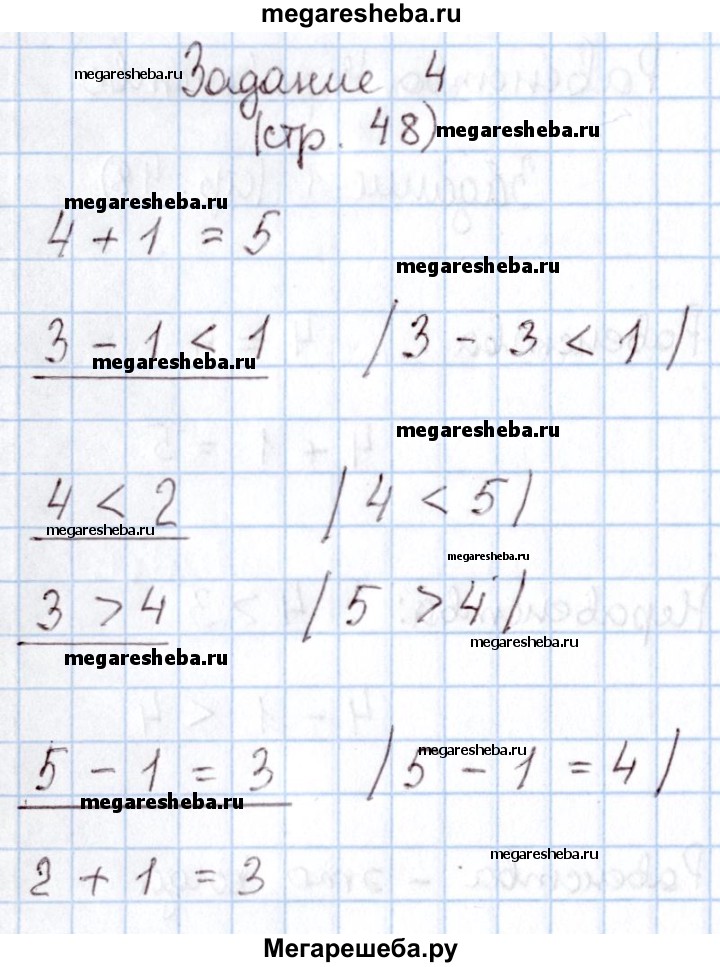 megaresheba.ru
megaresheba.ru Задание 4
(стр. 48) megaresheba.ru
megaresheba.ru
4 + 1 = 5
megaresheba.ru
3 - 1 < 1 / 3 - 3 < 1 /
megaresheba.ru
megaresheba.ru
4 < 2 / 4 < 5 /
megaresheba.ru
megaresheba.ru
3 > 4 / 5 > 4 /
megaresheba.ru
megaresheba.ru
megaresheba.ru
5 - 1 = 3 / 5 - 1 = 4 /
megaresheba.ru
megaresheba.ru
2 + 1 = 3
Мегарешеба.ру